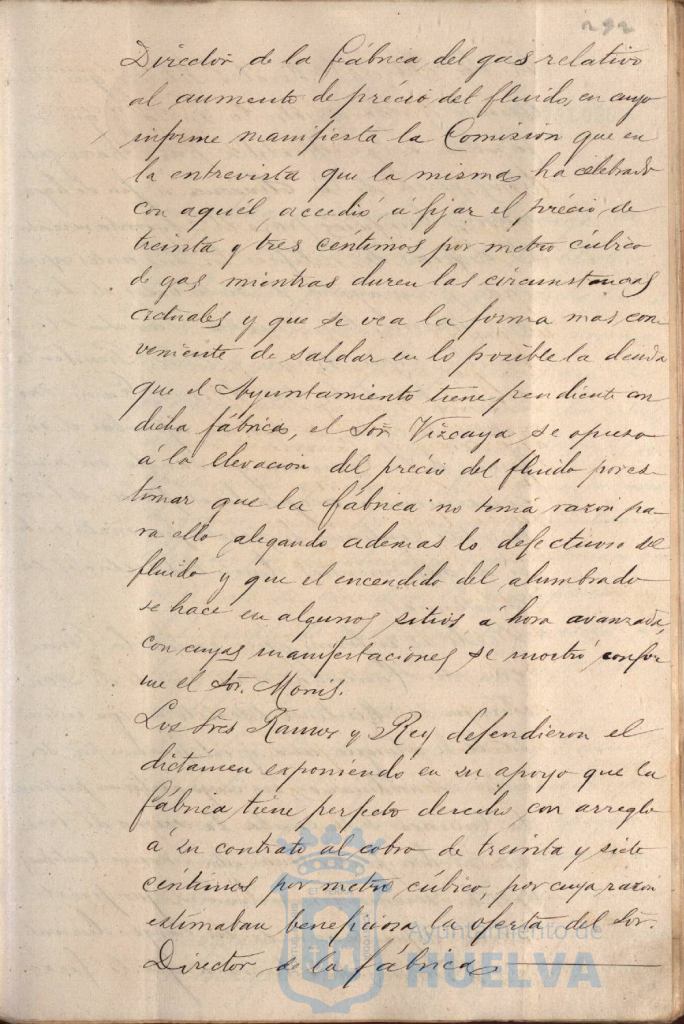 292
Director de la fábrica del gas relativo
al aumento de précio del fluido, en cuyo
informe manifiesta la Comisión que en
la entrevista que la misma ha celebrado
con aquél, accedió á fijar el précio de
treinta y tres céntimos por metro cúbico
de gas mientras duren las circunstancias
actuales y que se vea la forma mas con
veniente de saldar en lo posible la deuda
que el Ayuntamiento tiene pendiente con
dicha fábrica, el Sor. Vizcaya se opuso
á la elevación del précio del fluido por es-
timar que la fábrica no tenia razón pa-
ra ello alegando ademas lo defectuoso del
fluido y que el encendido del alumbrado
se hace en algunos sitios á hora avanzada,
con cuyas manifestaciones se mostró confor
me el Sor. Monis.
Los Sres Ramos y Rey defendieron el
dictámen exponiendo en su apoyo que la
fábrica tiene perfecto derecho con arreglo
á su contrato al cobro de treinta y siete
céntimos por metro cúbico, por cuya razón
estimaban beneficiosa la oferta del Sor.
Director de la fábrica
Ayuntamiento de
HUELVA